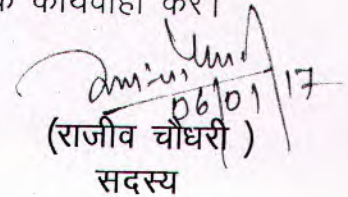 कार्यवाही करें।
06/01/17
(राजीव चौधरी )
सदस्य